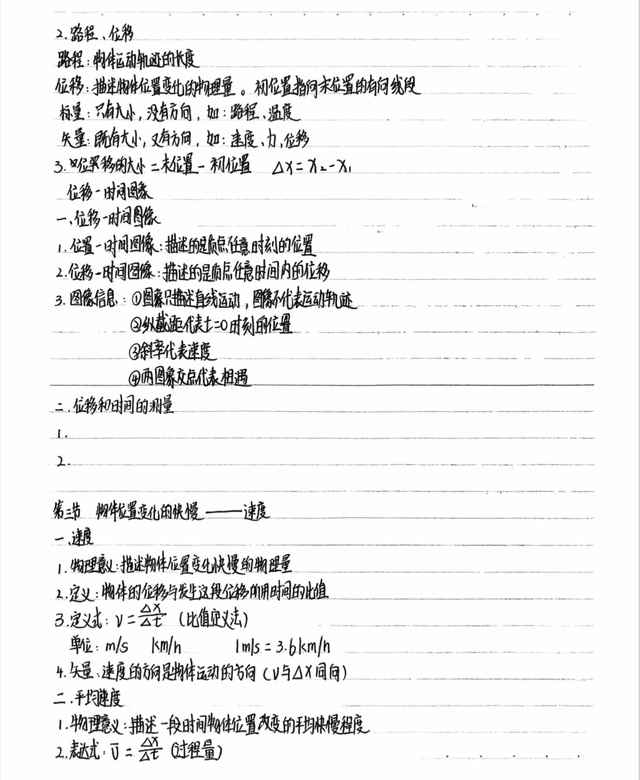 2.路程、位移
路程:物体运动轨迹的长度
位移:描述物体位置变化的物理量。初位置指向末位置的有向线段
标量:只有大小,没有方向,如:路程、温度
矢量:既有大小,又有方向,如:速度、力、位移
3.位移的大小=末位置-初位置 Δx=x₂-x₁
位移-时间图像
一、位移-时间图像
1.位置-时间图像:描述的是质点任意时刻的位置
2.位移-时间图像:描述的是质点任意时间内的位移
3.图像信息:①图像只描述直线运动,图像不代表运动轨迹
②纵截距代表t=0时刻的位置
③斜率代表速度
④两图象交点代表相遇
二.位移和时间的测量
1.
2.
第三节 物体位置变化的快慢——速度
一、速度
1.物理意义:描述物体位置变化快慢的物理量
2.定义:物体的位移与发生这段位移所用时间的比值
3.定义式:v=Δx/Δt (比值定义法)
单位:m/s km/h 1m/s=3.6km/h
4.矢量:速度的方向是物体运动的方向(v与Δx同向)
二.平均速度
1.物理意义:描述一段时间物体位置改变的平均快慢程度
2.表达式:v̄=Δx/Δt (过程量)